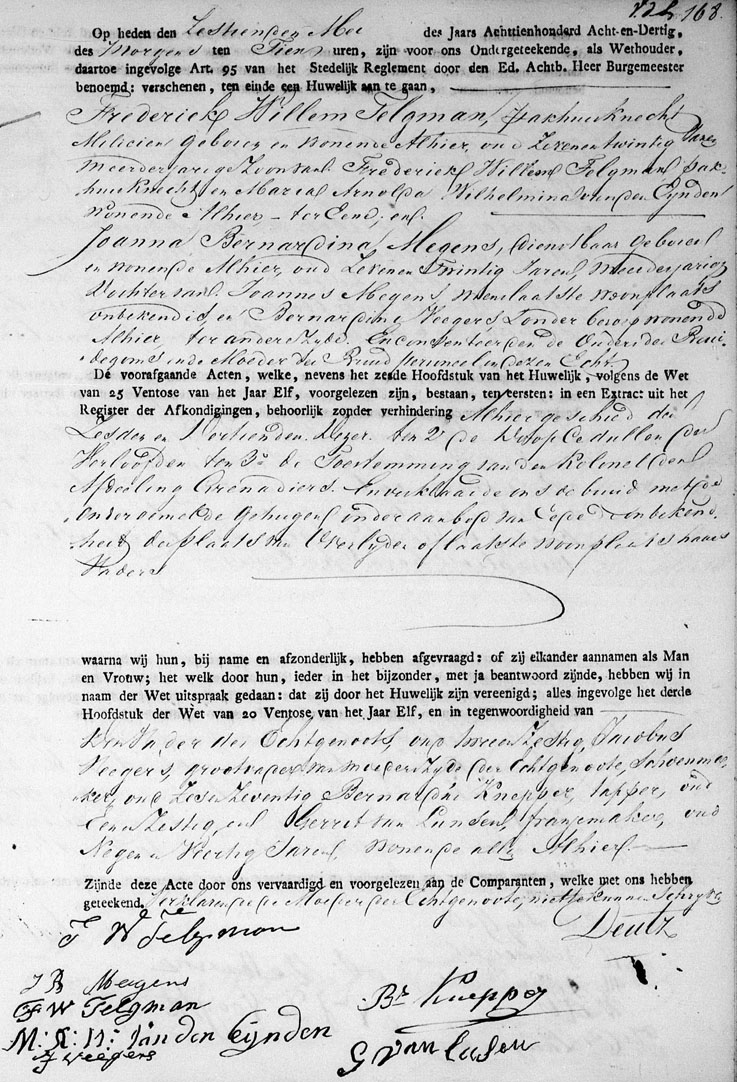 168.
Op heden den Zestienden Mei des Jaars Achttienhonderd Acht-en-Dertig,
des Morgens ten Tien uren, zijn voor ons Ondergeteekende, als Wethouder,
daartoe ingevolge Art. 95 van het Stedelijk Reglement door den Ed. Achtb. Heer Burgemeester
benoemd: verschenen, ten einde een Huwelijk aan te gaan,
Frederick Willem Telgman, pakhuisknecht
Milicien Geboren en wonende Alhier, oud Zevenentwintig Jaren
meerderjarige Zoon van Frederick Willem Telgman pak-
huisknecht, en Maria Arnolda Wilhelmina van den Eynden
wonende Alhier, - ter Eene; en.
Joanna Bernardina Megens, dienstbaar Geboren
en wonende Alhier, oud Zevenen Twintig Jaren, meerderjarige
Dochter van Joannes Megens, wiens laatste woonplaats
onbekend is, en Bernardina Veegers zonder beroep wonende
Alhier ter andere Zyde. En consenteerden de Ouders des Brui-
degoms en de Moeder der Bruid personeel in dezen Echt.
De voorafgaande Acten, welke, nevens het zesde Hoofdstuk van het Huwelijk, volgens de Wet
van 25 Ventose van het Jaar Elf, voorgelezen zijn, bestaan, ten eersten: in een Extract uit het
Register der Afkondigingen, behoorlijk zonder verhindering Alhier geschied den
Zesden en Dertienden dezer. ten 2° de Doop Cedullen der
Verloofden ten 3° de Toestemming van den Kolonel der
Afdeeling Grenadiers. En verklaarde ons de bruid met de
ondergemelde Getuigen onder aanbod van Eede onbekend-
heit der plaats van Overlyden of laatste woonplaats haars
Vaders
waarna wij hun, bij name en afzonderlijk, hebben afgevraagd: of zij elkander aannamen als Man
en Vrouw; het welk door hun, ieder in het bijzonder, met ja beantwoord zijnde, hebben wij in
naam der Wet uitspraak gedaan: dat zij door het Huwelijk zijn vereenigd; alles ingevolge het derde
Hoofdstuk der Wet van 20 Ventose van het Jaar Elf, en in tegenwoordigheid van
den Vader des Echtgenoots, oud tweenZestig, Jacobus
Veegers, grootvader van moeders zyde der Echtgenoote, Schoenma-
ker, oud Zesen Zeventig Bernardus Knepper, tapper, oud
Eenen Zestig, en Gerrit van Lunsen, franjemaker, oud
Negen en Veertig Jaren, wonende allen Alhier
Zijnde deze Acte door ons vervaardigd en voorgelezen aan de Comparanten, welke met ons hebben
geteekend. Verklarende de Moeder der Echtgenoote, niet te kunnen Schryven
F W Telgman Deutz
J B Megens
F W Telgman Br Knepper
M: A: W: van den Eynden
J Weegers G van Lunsen